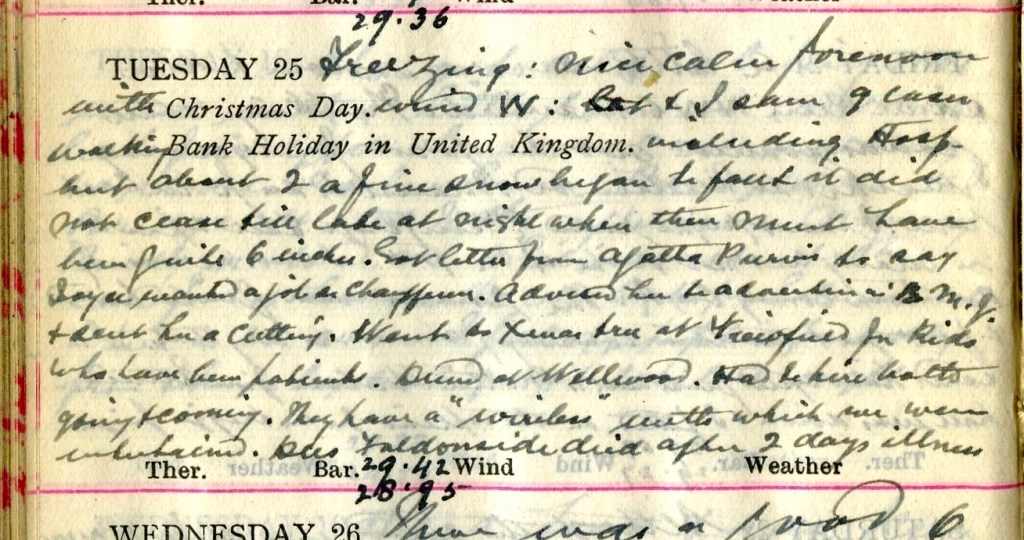 Ther. Bar. Wind Weather
29.36
TUESDAY 25 Freezing: nice calm forenoon
with Christmas Day. wind W: & I saw 9 cases
walking Bank Holiday in United Kingdom. including Hosp.
but about 2 a fine snow began to fall & it did
not cease till late at night when there must have
been quite 6 inches. Got letter from Agatha Purvis to say
Joyce wanted a job as Chauffeur. Advised her to advertise in B.M.J.
& sent her a cutting. Went to Xmas tree at Viewfield for Kids
who have been patients. Dined at Wellwood. Had to hire both
going & coming. They have a "wireless" with which we were
entertained. died after 2 days illness
Ther. Bar. 29.42 Wind Weather
28.95
WEDNESDAY 26 There was a good 6